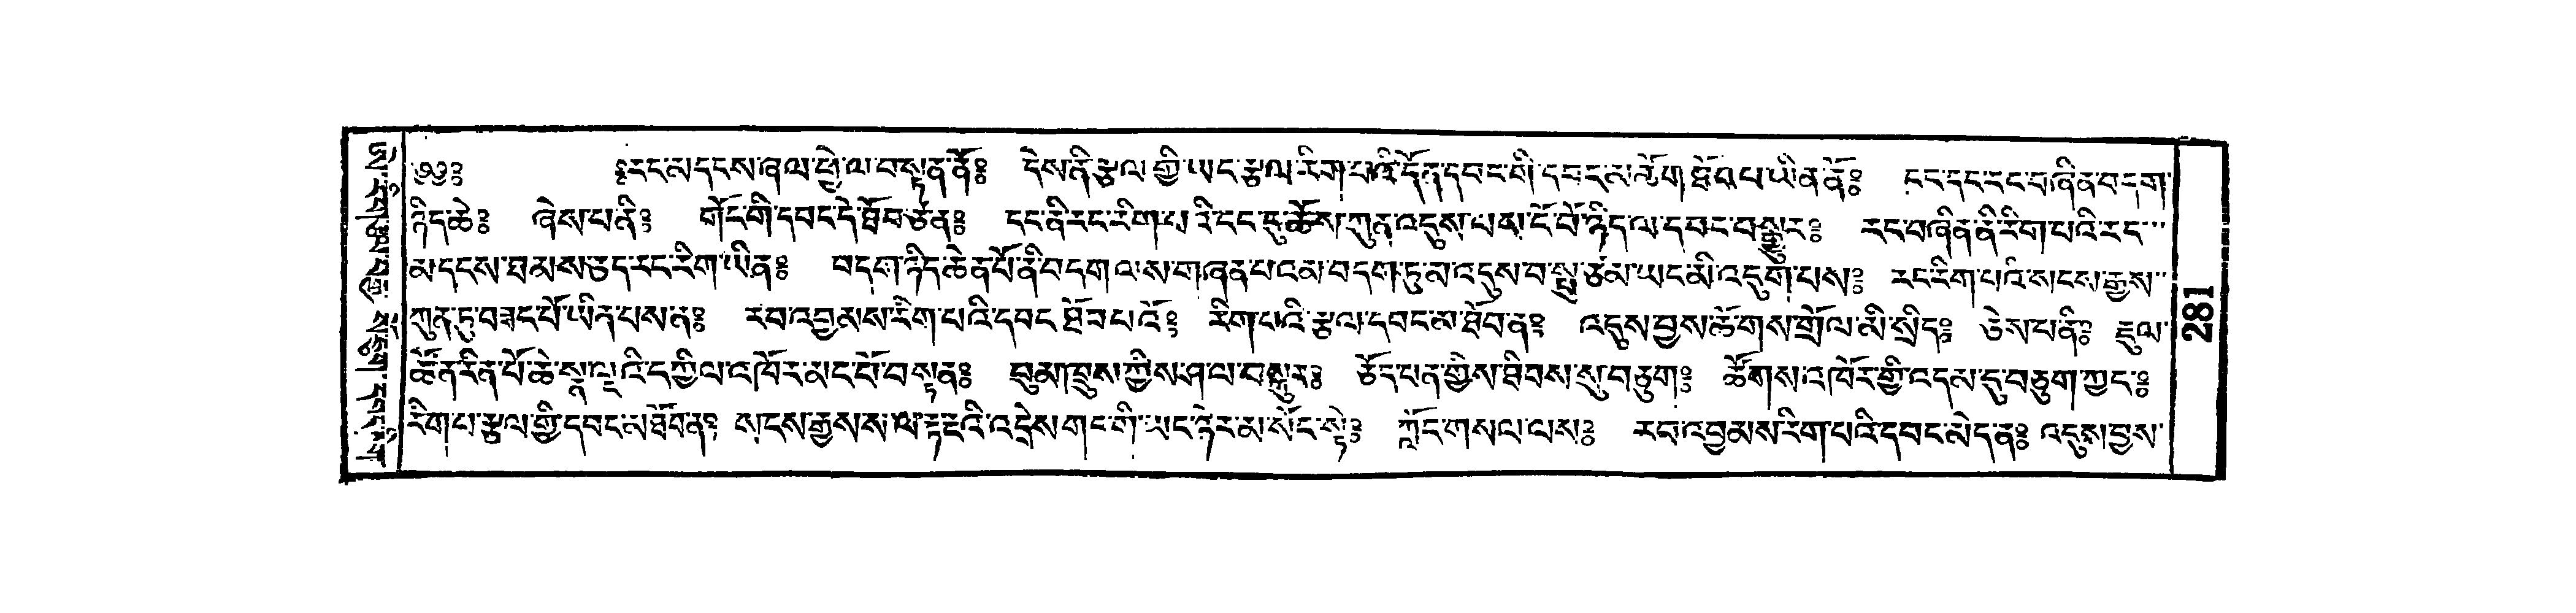 ༄༅༔ ༔རང་མདངས་ཞལ་ཕྱེ་ལ་བསྟན་ནོ༔ དེས་ནི་རྩལ་གྱི་ཡང་རྩལ་རིག་པའི་དོན་དབང་གི་དབང་མ་ལོག་ཐོབ་པ་ཡིན་ནོ༔ ངང་དང་རང་བཞིན་བདག་
ཉིད་ཆེ༔ ཞེས་པ་ནི༔ གོང་གི་དབང་དེ་ཐོབ་ཙན༔ ངང་ནི་རང་རིག་པའི་ངང་དུ་ཆོས་ཀུན་འདུས་པས་ངོ་བོ་ཉིད་ལ་དབང་བསྒྱུར༔ རང་བཞིན་ནི་རིག་པའི་རང་
མདངས་ཐམས་ཅད་རང་རིག་ཡིན༔ བདག་ཉིད་ཆེན་པོ་ནི་བདག་ལས་གཞན་པའམ་བདག་ཏུ་མ་འདུས་བ་སྤུ་ཙམ་ཡང་མི་འདུག་པས༔ རང་རིག་པའི་སངས་རྒྱས་
ཀུན་ཏུ་བཟང་པོ་ཡིན་པས་ན༔ རབ་འབྱམས་རིག་པའི་དབང་ཐོབ་པའོ༔ རིག་པའི་རྩལ་དབང་མ་ཐོབ་ན༔ འདུས་བྱས་ཚོགས་གྲོལ་མི་སྲིད༔ ཅེས་པ་ནི༔ རྡུལ་
ཚོན་རིན་པོ་ཆེ་སྣ་ལྔའི་དཀྱིལ་འཁོར་མང་པོ་བསྟན༔ བུམ་ཁྲུས་ཀྱིས་ཤ་ལ་བསྐུར༔ ཅོད་པན་གྱིས་ཐིབས་སུ་བཅུག༔ ཚོགས་འཁོར་གྱི་འདམ་དུ་བཅུག་ཀྱང༔
རིག་པ་རྩལ་གྱི་དབང་མ་ཐོབ་ན༔ སངས་རྒྱས་ས་ལ་རྟ་རྔའི་འདྲེས་གང་གི་ཡང་ཉེར་མ་སོང་སྟེ༔ ཀློང་གསལ་ལས༔ རབ་འབྱམས་རིག་པའི་དབང་མེད་ན༔ འདུས་བྱས་
281